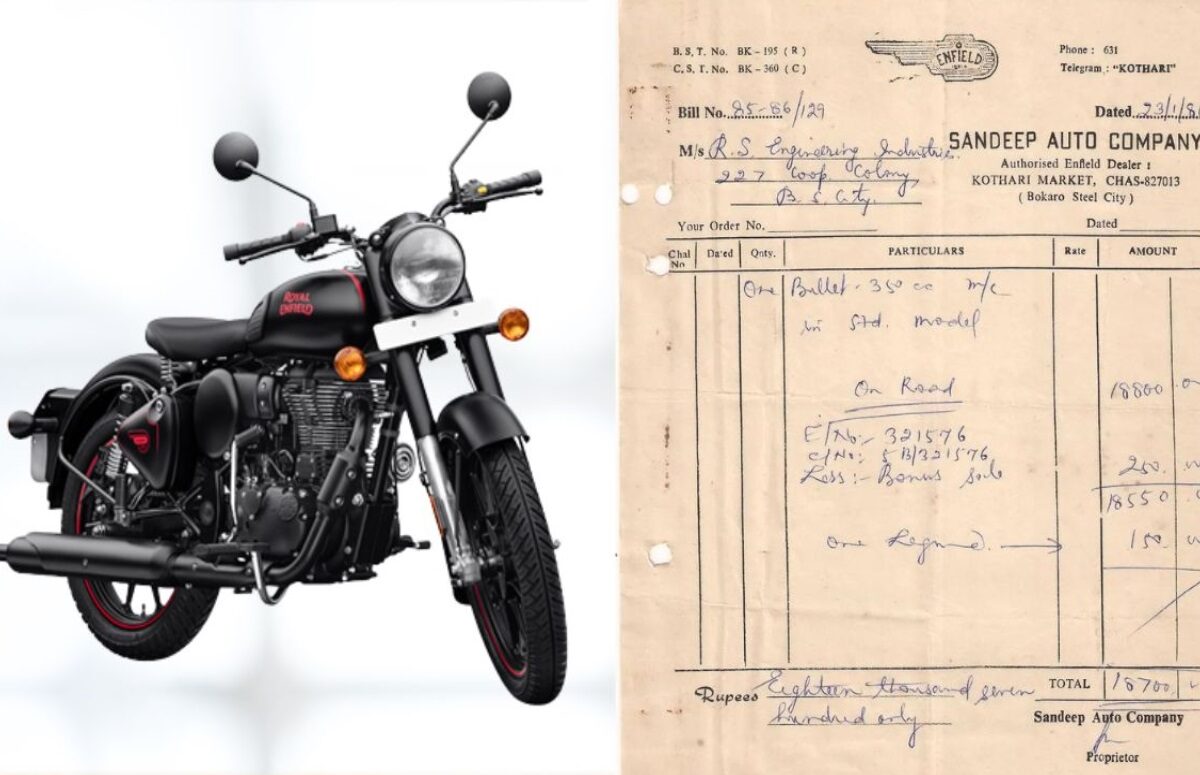 ROYAL
ENFIELD
B. S. T. No. BK - 195 ( R )
C. S. T. No. BK - 360 ( C )
ENFIELD
Phone : 631
Telegram : "KOTHARI"
Bill No. 85-86/129
Dated 23/1/8
M/s R. S. Engineering Industries.
227 Coop. Colony,
B. S. City.
SANDEEP AUTO COMPANY
Authorised Enfield Dealer :
KOTHARI MARKET, CHAS-827013
( Bokaro Steel City )
Your Order No.
Dated
Chal No Dated Qnty. PARTICULARS Rate AMOUNT
One Bullet - 350 cc m/c
in Std. model
On Road 18800
E/No:- 321576
C/No:- 5B/321576
Less :- Bonus 250
18550
One → 150
Rupees Eighteen thousand seven TOTAL 18700
hundred only
Sandeep Auto Company
Proprietor